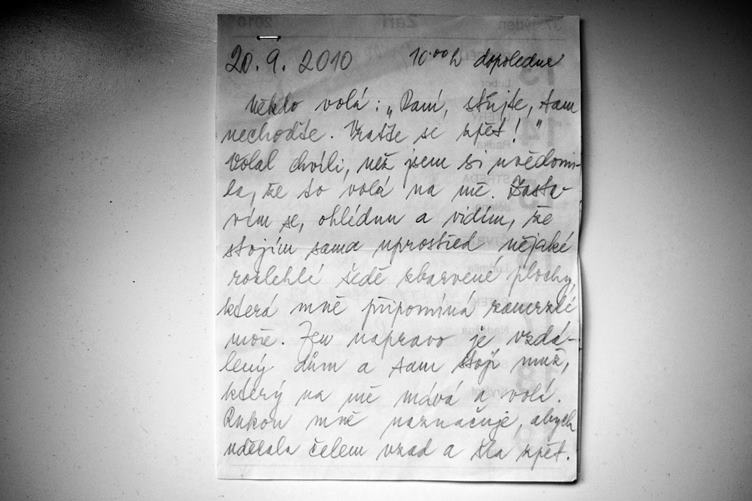 20. 9. 2010 10⁰⁰h dopoledne
Někdo volá: „Paní, stůjte, tam
nechoďte. Vraťte se zpět!"
Volal chvíli, než jsem si uvědomi-
la, že to volá na mě. Zasta-
vím se, ohlédnu a vidím, že
stojím sama uprostřed nějaké
rozlehlé šedě zbarvené plochy,
která mně připomíná zamrzlé
moře. Jen napravo je vzdá-
lený dům a sam stojí muž,
který na mě mává a volá.
Rukou mně naznačuje, abych
udělala čelem vzad a šla zpět.